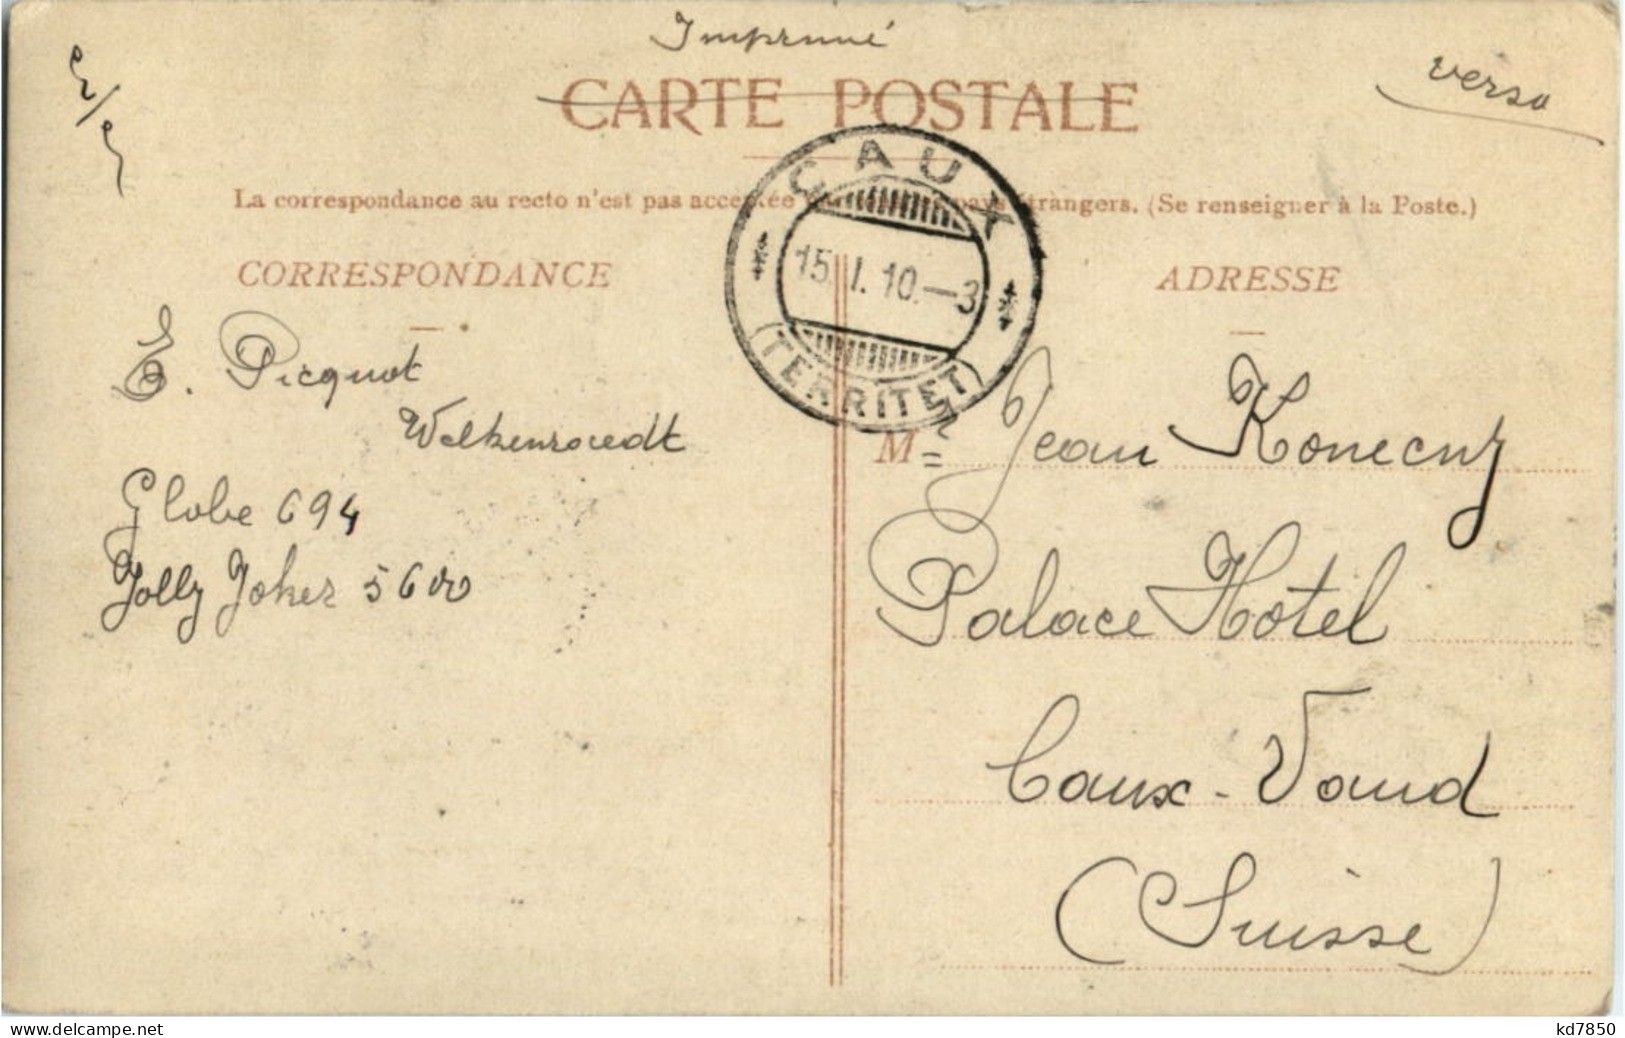 Imprimé
verso
CARTE POSTALE
La correspondance au recto n'est pas acceptée pays étrangers. (Se renseigner à la Poste.)
CAUX
15. I. 10.—3
(TERRITET)
CORRESPONDANCE
E. Picquot
Welkenraedt
Globe 694
Jolly Joker 5600
ADRESSE
Mr Jean Konecny
Palace Hotel
Caux - Vaud
(Suisse)
www.delcampe.net
kd7850